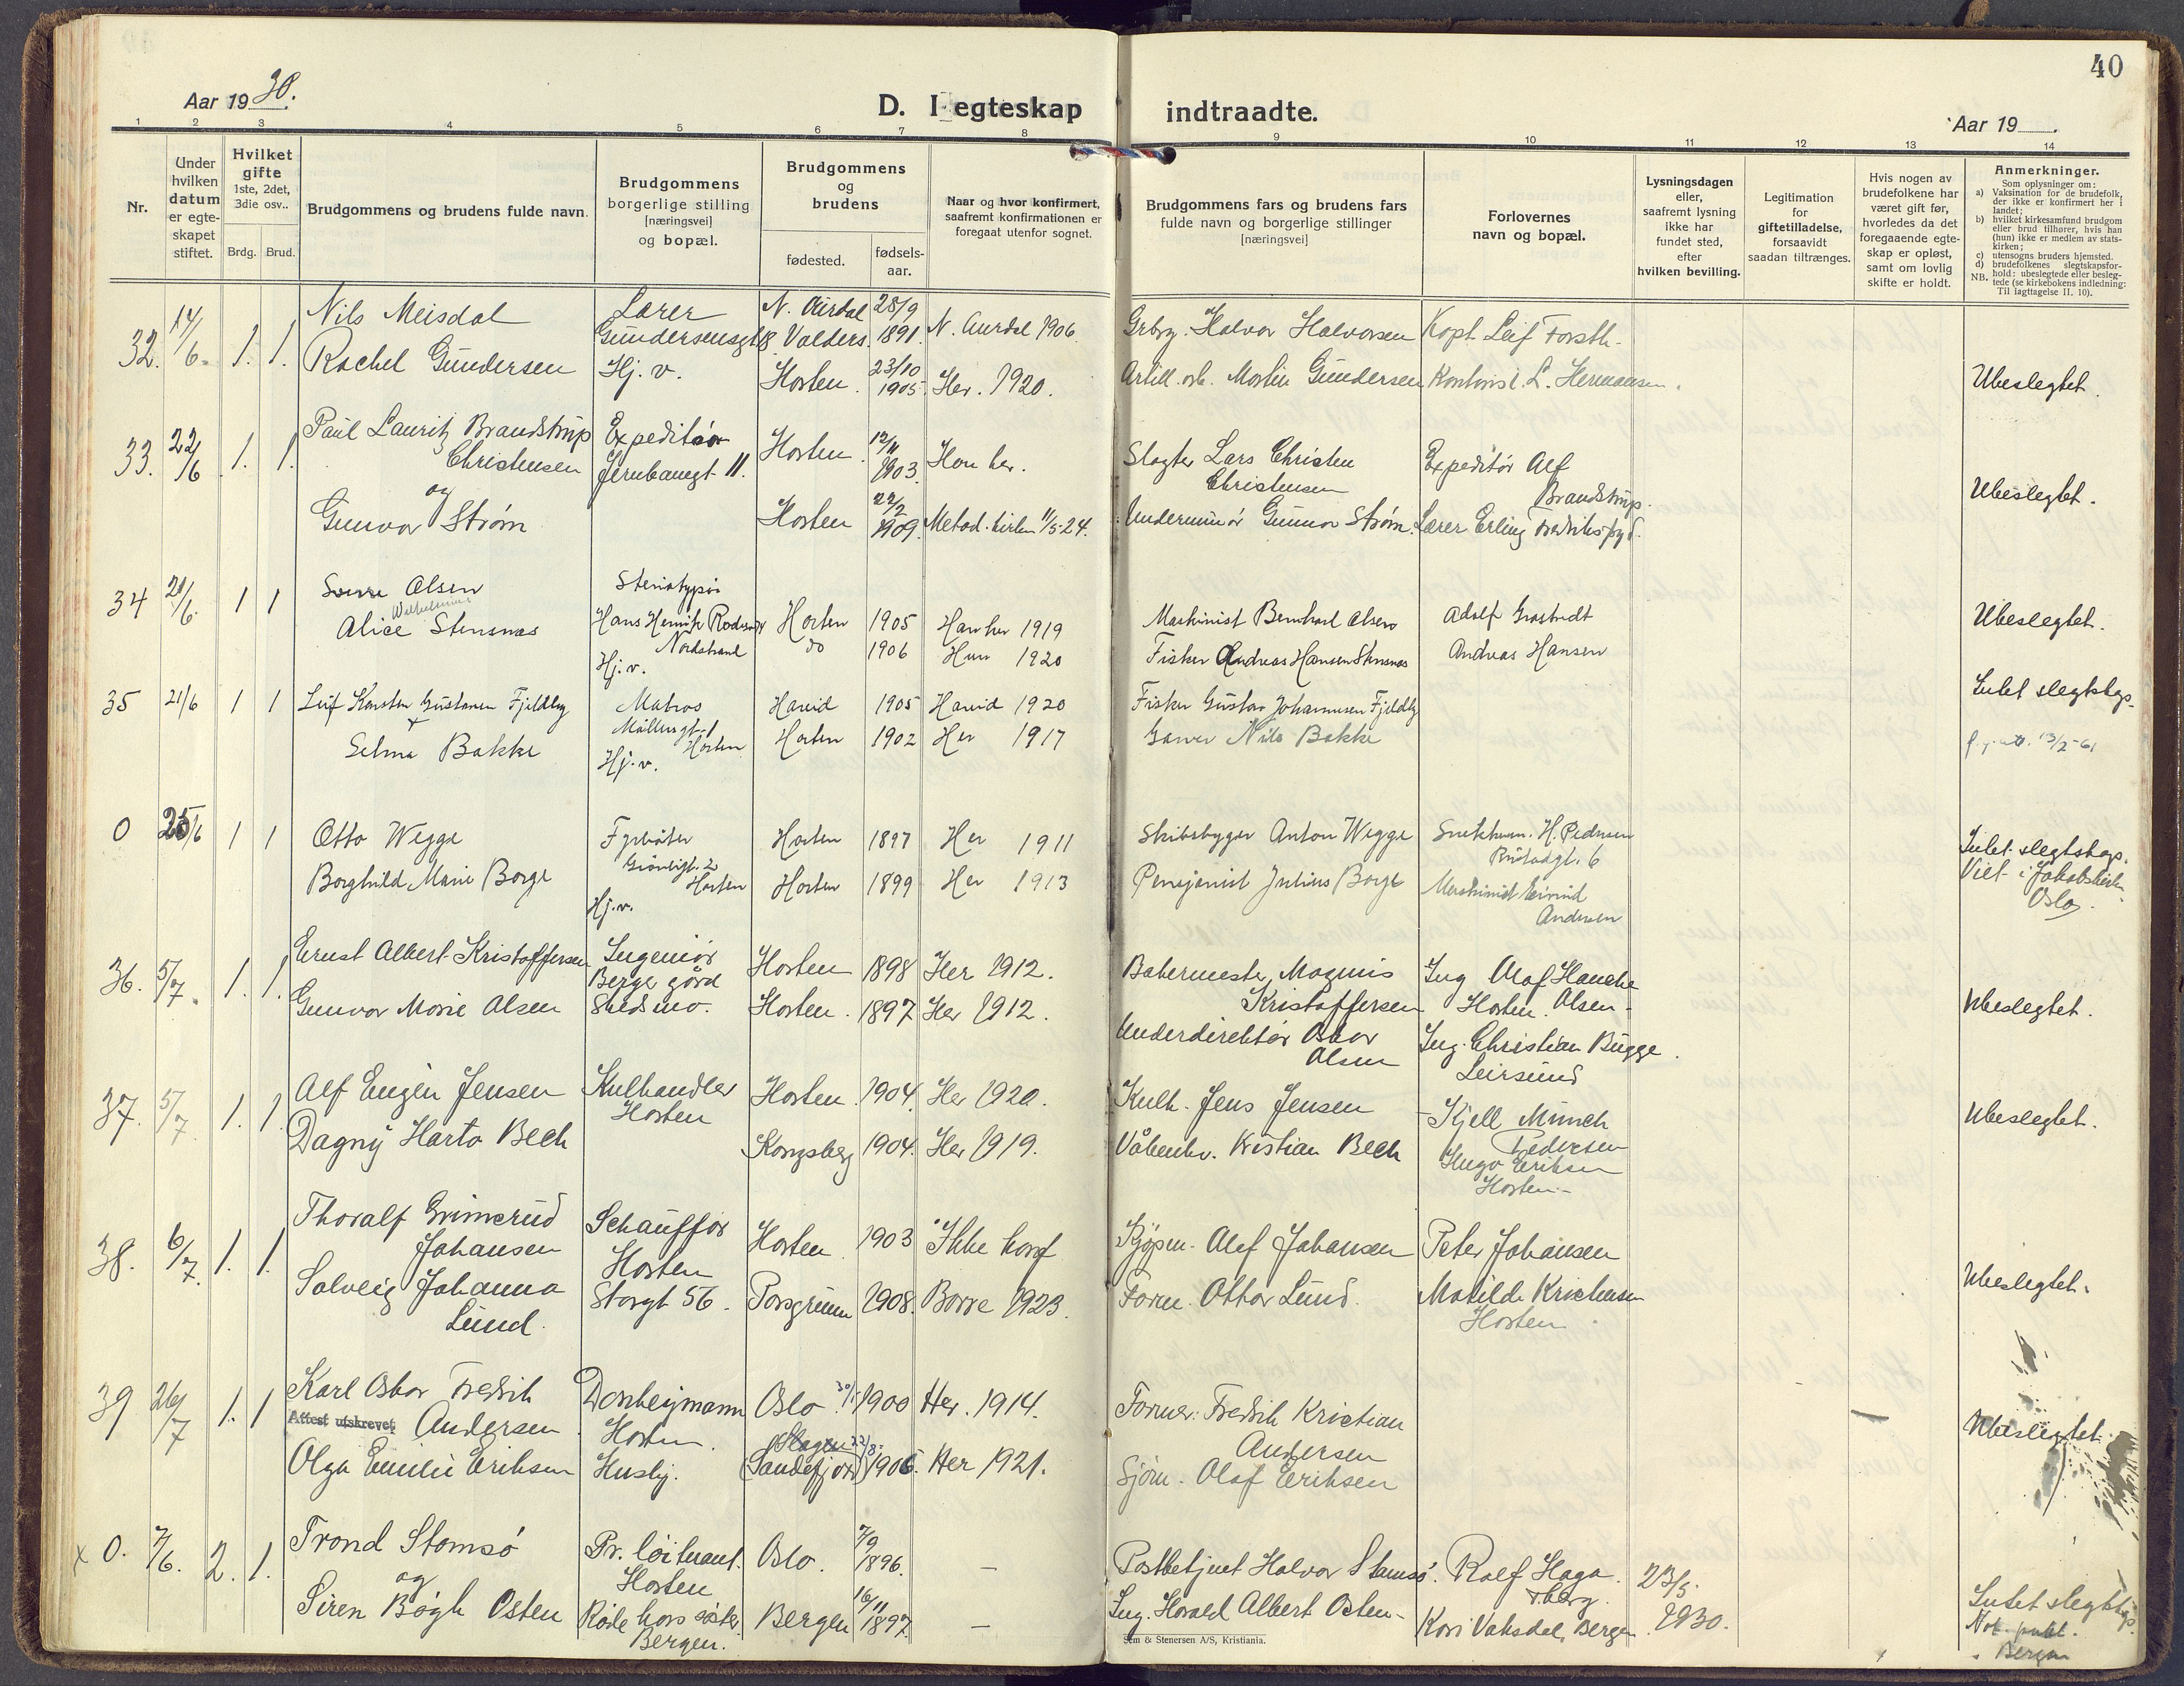 40
Aar 1930.
D. I egteskap indtraadte.
Aar 19
1 2 3 4 5 6 7 8 9 10 11 12 13 14
Nr.
Under hvilken datum er egteskapet stiftet.
Hvilket gifte 1ste, 2det, 3die osv..
Brdg. Brud.
Brudgommens og brudens fulde navn.
Brudgommens borgerlige stilling [næringsvei] og bopæl.
Brudgommens og brudens
fødested.
fødselsaar.
Naar og hvor konfirmert, saafremt konfirmationen er foregaat utenfor sognet.
Brudgommens fars og brudens fars fulde navn og borgerlige stillinger [næringsvei]
Forlovernes navn og bopæl.
Lysningsdagen eller, saafremt lysning ikke har fundet sted, efter hvilken bevilling.
Legitimation for giftetilladelse, forsaavidt saadan tiltrænges.
Hvis nogen av brudefolkene har været gift før, hvorledes da det foregaaende egteskap er opløst, samt om lovlig skifte er holdt.
Anmerkninger.
Som oplysninger om:
a) Vaksination for de brudefolk, der ikke er konfirmert her i landet;
b) hvilket kirkesamfund brudgom eller brud tilhører, hvis han (hun) ikke er medlem av statskirken;
c) utensogns bruders hjemsted.
d) brudefolkenes slegtskapsforhold: ubeslegtede eller beslegtede (se kirkebokens indledning: Til iagttagelse II. 10).
NB.
32. 14/6. 1. 1. Nils Meisdal Lærer N. Aurdal 28/9 N. Aurdal 1906 Grbrg. Halvor Halvorsen Kapt. Leif Forsth.
Gundersensgt 18 Valders. 1891.
Rachel Gundersen Hj. v. Horten. 23/10 1905 Her. 1920. Artill. arb. Martin Gundersen Kontorist L. Hermansen. Ubeslegtet.
33. 22/6 1. 1. Paul Lauritz Brandstrup Expeditør Horten. 12/11 1903. Han her. Slagter Lars Christen Expeditør Alf
Christensen Jernbanegt 11. Christensen Brandstrup.
og
Gunvor Strøm Horten 22/2 1909. Metod. kirken 11/5-24. Underminør Gunnar Strøm. Lærer Erling Ubeslegtet.
34 21/6. 1 1 Sverre Olsen Horten 1905 Han her 1919 Maskinist Bernhard Olsen Adolf
Wilhelmine
Alice Stensnæs Hans Henrik Nordstrand do 1906 Hun 1920 Fisker Andreas Hansen Stensnæs Andreas Hansen Ubeslegtet.
Hj. v.
35 21/6 1 1 Leif Karsten Gustavsen Fjeldby Matros 1905 1920 Fisker Gustav Johannesen Fjeldby Intet slegtskap.
Møllergt. 1 Horten
Selma Bakke Hj. v. Horten 1902 Her 1917 Garver Nils Bakke 13/2-61
0 25/6 1 1 Otto Wegge Fyrbøter Horten 1897 Her 1911 Skibsbygger Anton Wegge Snekkerm. H. Pedersen Intet slegtskap.
Grønligt. 2 Horten 6 Viet i Jakobskirken
Borghild Marie Borge Hj. v. Horten 1899 Her 1913 Pensjonist Julius Borge Maskinist Eivind Andersen Oslo.
36. 5/7. 1. 1. Ernst Albert Kristoffersen Ingeniør Horten 1898 Her 1912. Bakermester Magnus Ing Olaf Hanche
Berger gård Kristoffersen Horten. Olsen-
Gunvor Marie Olsen Skedsmo. Horten. 1897 Her 1912. Underdirektør Oskar Olsen Ing. Christian Bugge. Leirsund Ubeslegtet.
37. 5/7 1. 1. Alf Eugen Jensen Kulhandler Horten. 1904. Her 1920. Kulh. Jens Jensen Kjell Münch
Horten Pedersen
Dagny Harto Bech Kongsberg 1904. Her 1919. Våbenkv. Kristian Bech Hugo Eriksen Horten.- Ubeslegtet.
38. 6/7. 1. 1. Thoralf Grimsrud Schauffør Horten. 1903 Ikke konf Kjøpm. Olef Johansen Peter Johansen
Johansen Horten
Solveig Johanna Storgt 56. Porsgrunn 1908. Borre 1923. Form. Ottar Lund. Matilde Kristensen Ubeslegtet.
Lund. Horten
39 26/7 1. 1 Karl Oskar Fredrik Donkeymann Oslo. 30/1 1900 Her. 1914. Former. Fredrik Kristian
Attest utskrevet Andersen Horten. Slagen 22/8 Andersen Ubeslegtet.
Olga Emilie Eriksen Husbj. (Sandefjord) 1906. Her 1921. Sjøm. Olaf Eriksen
x 0. 7/6. 2. 1. Trond Stamsø Pr. løitnant. Oslo. 7/9 1896. – Postbetjent Halvor Stamsø. Rolf Haga. Tbarg. 23/5. 1930.
og Horten
Siren Bøgh Osten Røde kors søster Bergen. Bergen 16/11 1897. – Ing. Harald Albert Osten- Kari Vaksdal, Bergen Intet slegtskap.
Not. publ.
Bergen
Sem & Stenersen A/S, Kristiania.